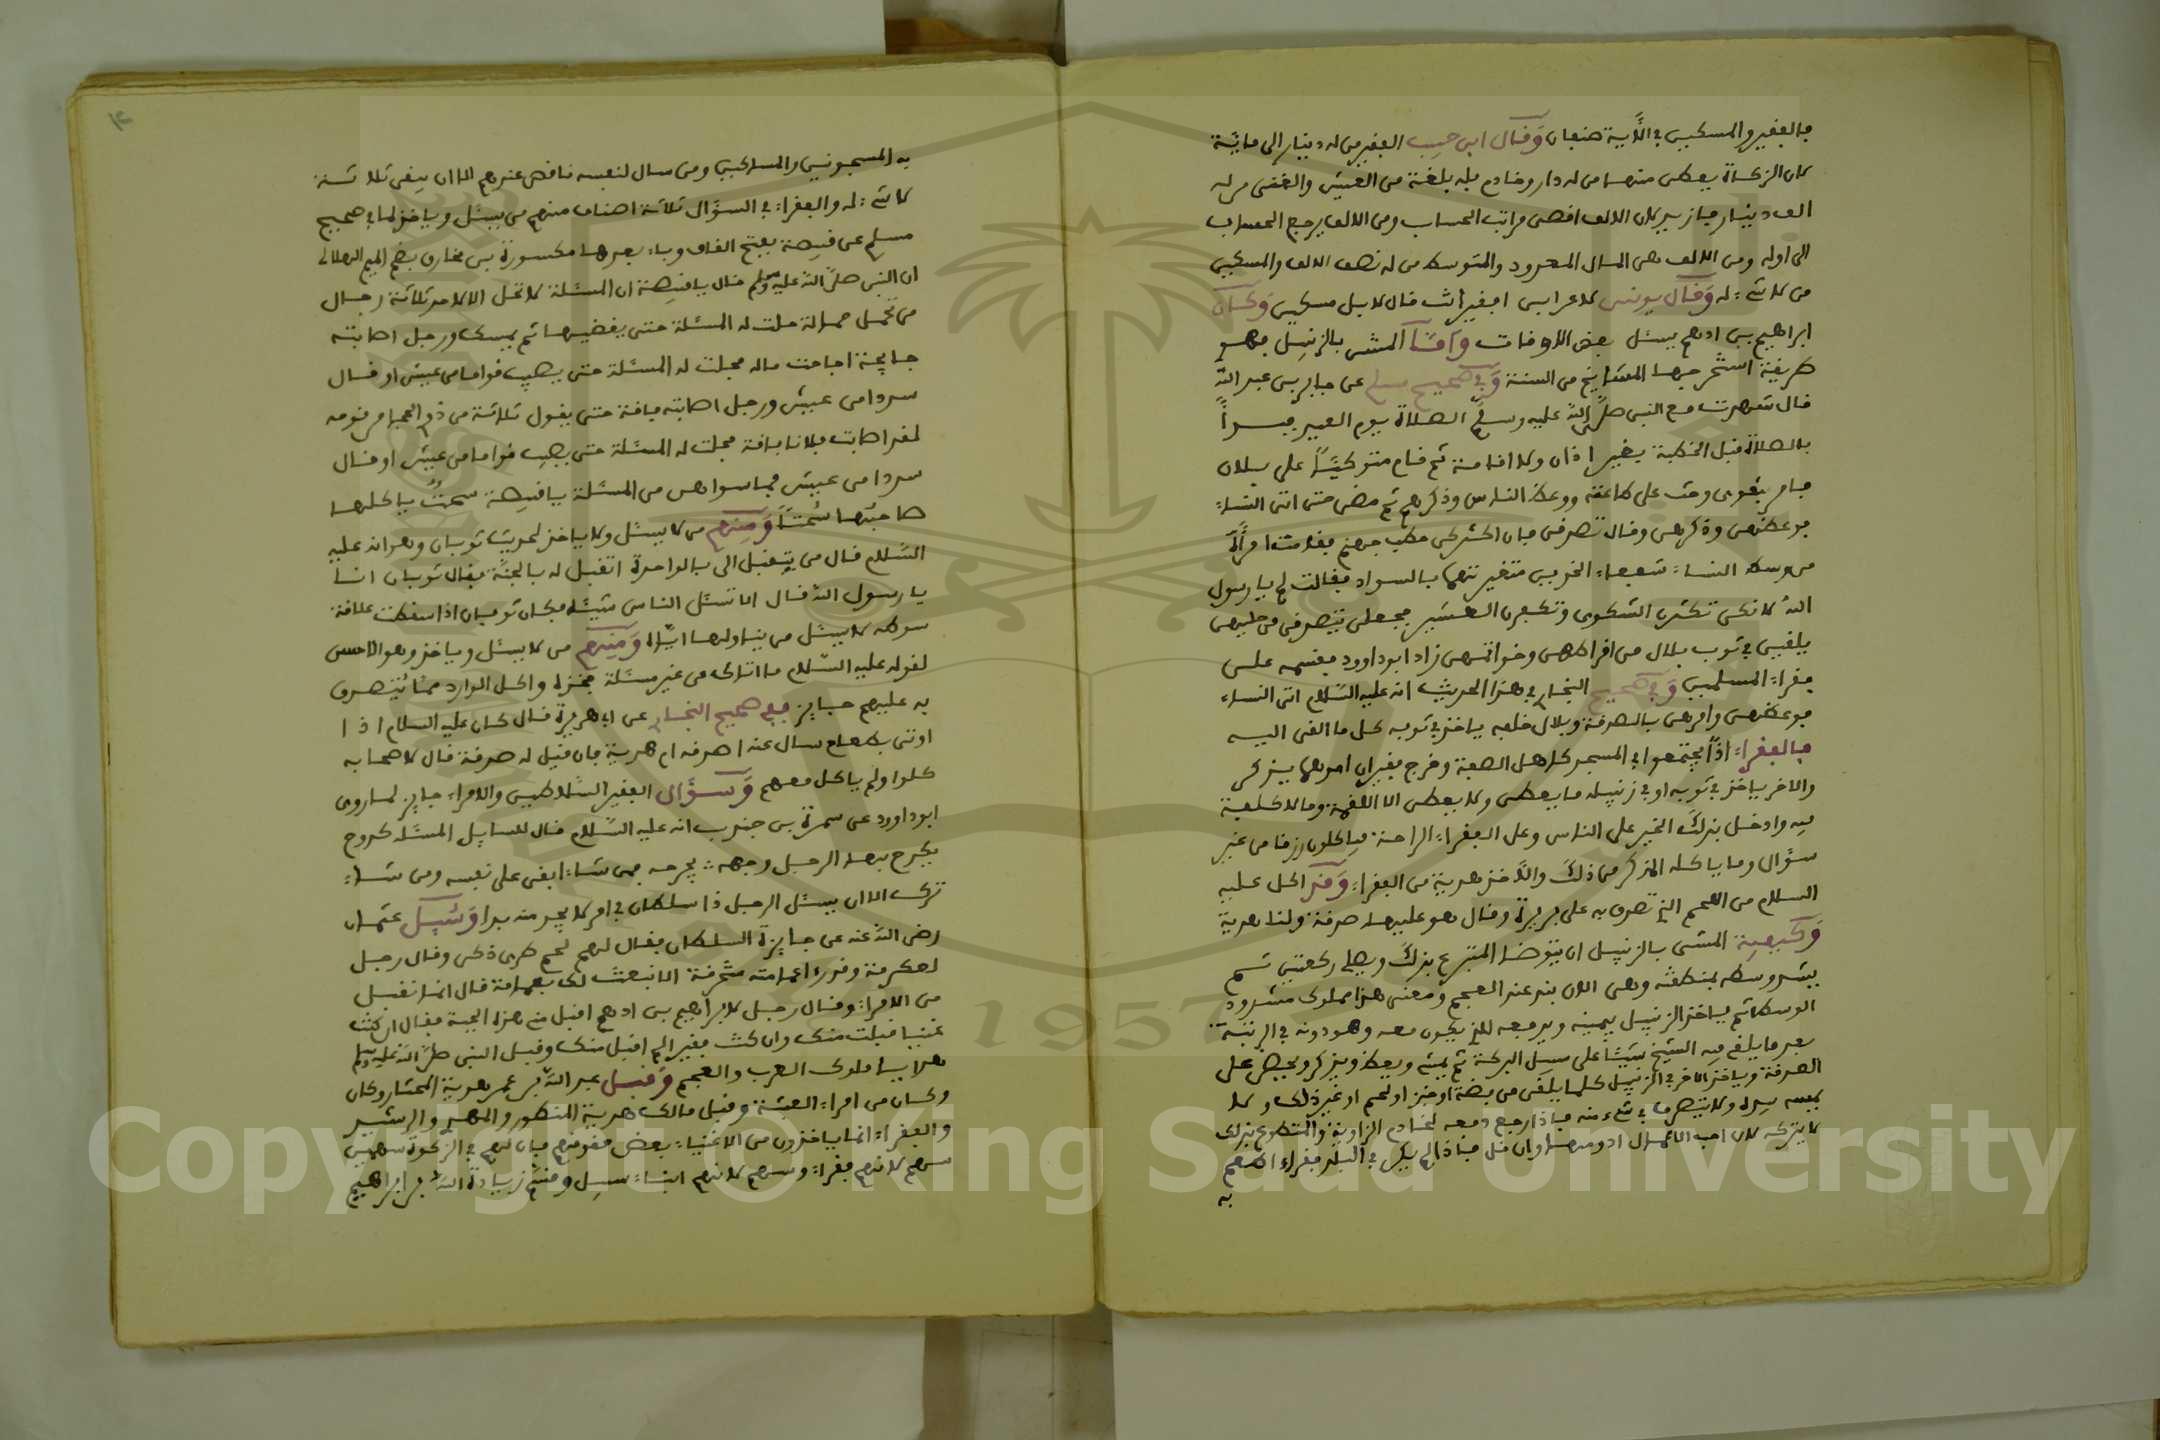 فالفقير والمسكين في الآية صنفان وقال ابن حبيب الفقير من له دينار الى مائة
لان الزكاة يعطى منها من له دار وخادم بله بلغة من العيش والغنى من له
الف دينار فازيد لان الالف اقصى مراتب الحساب ومن الالف يرجع الحساب
الى اوله ومن الالف هي المال المعدود والمتوسط من له نصف الالف والمسكين
من لا شيء له وقال يونس لاعرابي افقير انت قال لا بل مسكين وكان
ابراهيم بن ادهم يسئل بعض الاوقات وأما المشي بالزنبيل فهو
طريقة استخرجها المشايخ من السنة وفي صحيح مسلم عن جابر بن عبد الله
قال شهدت مع النبي صلى الله عليه وسلم الصلاة يوم العيد فبدأ
بالصلاة قبل الخطبة بغير اذان ولا اقامة ثم قام متوكئا على بلال
فامر بتقوى وحث على طاعته ووعظ الناس وذكرهم ثم مضى حتى اتى النساء
فوعظهن وذكرهن وقال تصدقن فان اكثركن حطب جهنم فقامت امرأة
من وسط النساء سفعاء الخدين متغير لونها بالسواد فقالت لم يا رسول
الله لانكن تكثرن الشكوى وتكفرن العشير فجعلن يتصدقن من حليهن
يلقين في ثوب بلال من اقراطهن وخواتمهن زاد ابو داوود فقسمه على
فقراء المسلمين وفي صحيح البخاري في هذا الحديث انه عليه السلام اتى النساء
فوعظهن وامرهن بالصدقة وبلال خلفه ياخذ في ثوبه كل ما القى اليه
فالفقراء اذا يجتمعوا في المسجد كاهل الصفة وخرج فقيران احدهما يذكر
والاخر ياخذ في ثوبه او في زنبيله ما يعطى ولا يعطى الا اللقمة وما لا كلفة
فيه وادخل بذلك الخير على الناس وعلى الفقراء الراحة فياكلون رزقا من غير
سؤال وما ياكله المذكر من ذلك والآخذ هدية من الفقراء وقد اكل عليه
السلام من اللحم الذي تصدق به على بريرة وقال هو عليها صدقة ولنا هدية
وكيفية المشي بالزنبيل ان يتوضا المتبرع بذلك ويصلي ركعتين ثم
يشد وسطه بمنطقته وهي اللان بند عند العجم ومعنى هذا مملوك مشدود
الوسط ثم ياخذ الزنبيل بيمينه ويدفعه للذي يكون معه وهو دونه في الرتبة
بعد ما يلقي فيه الشيخ شيئا على سبيل البركة ثم يمشي ويعظ ويذكر ويحض على
الصدقة وياخذ الاخر في الزنبيل كلما يلقى من بضة او خبز او لحم او غير ذلك ولا
يمسه بيده ولا يتصرف في شيء منه فاذا رجع دفعه لخادم الزاوية والمتطوع بذلك
لا يتركه لان احب الاعمال ادومها وان قل فاذا لم يكن في البلد فقراء اطعم
به
به المسجونين والمساكين ومن سال لنفسه ناقص عندهم الا ان يبقى ثلاثة
لا شيء له والفقراء في السؤال ثلاثة اصناف منهم من يسئل وياخذ لما في صحيح
مسلم عن قبيصة بفتح القاف وباء بعدها مكسورة بن مخارق بضم الميم الهلالي
ان النبي صلى الله عليه وسلم قال يا قبيصة ان المسئلة لا تحل الا لاحد ثلاثة رجال
من تحمل حمالة حلت له المسئلة حتى يقضيها ثم يمسك ورجل اصابته
جايحة اجاحت ماله فحلت له المسئلة حتى يصيب قواما من عيش او قال
سدادا من عيش ورجل اصابته فاقة حتى يقول ثلاثة من ذوي الحجا من قومه
لقد اصابت فلانا فاقة فحلت له المسئلة حتى يصيب قواما من عيش او قال
سدادا من عيش فما سواهن من المسئلة يا قبيصة سحت ياكلها
صاحبها سحتا ومنهم من لا يسئل ولا ياخذ لحديث ثوبان وهو انه عليه
السلام قال من يتقبل الي بالواحدة اتقبل له بالجنة فقال ثوبان انا
يا رسول الله قال لا تسئل الناس شيئا فكان ثوبان اذا سقطت علاقة
سوطه لا يسئل من يناولها اياه ومنهم من لا يسئل وياخذ وهو الاحسن
لقوله عليه السلام ما اتاك من غير مسئلة فخذه واكل الوارد مما يتصدق
به عليهم جايز ففي صحيح البخاري عن ابي هريرة قال كان عليه السلام اذا
اوتي بطعام سال عنه اصدقة ام هدية فان قيل له صدقة قال لاصحابه
كلوا ولم ياكل معهم وسؤال الفقير السلاطين والامراء جايز لما روى
ابو داوود عن سمرة بن جندب انه عليه السلام قال للسايل المسئلة كدوح
يكدح بها الرجل وجهه فمن شاء ابقى على نفسه ومن شاء
ترك الا ان يسئل الرجل ذا سلطان في امر لا يجد منه بدا وسئل عثمان
رضي الله عنه عن جايزة السلطان فقال لحم طري ذكي وقال رجل
لعكرمة وقد راى عمامته منخرقة الا نبعث لك بعمامة قال انما نقبل
من الامراء وقال رجل لابراهيم بن ادهم اقبل مني هذه الجبة فقال ان كنت
غنيا قبلت منك وان كنت فقيرا لم اقبل منك وقبل النبي صلى الله عليه وسلم
هدايا ملوك العرب والعجم وقبل عبد الله بن عمر هدية المختار وكان
وكان من امراء الفتنة وقبل مالك هدية المنصور والمهدي والرشيد
والفقراء انما ياخذون من الاغنياء بعض حقوقهم فان لهم في الزكوة سهمين
سهم لانهم فقراء وسهم لانهم ابناء سبيل وقسم زيادة الله بن ابراهيم